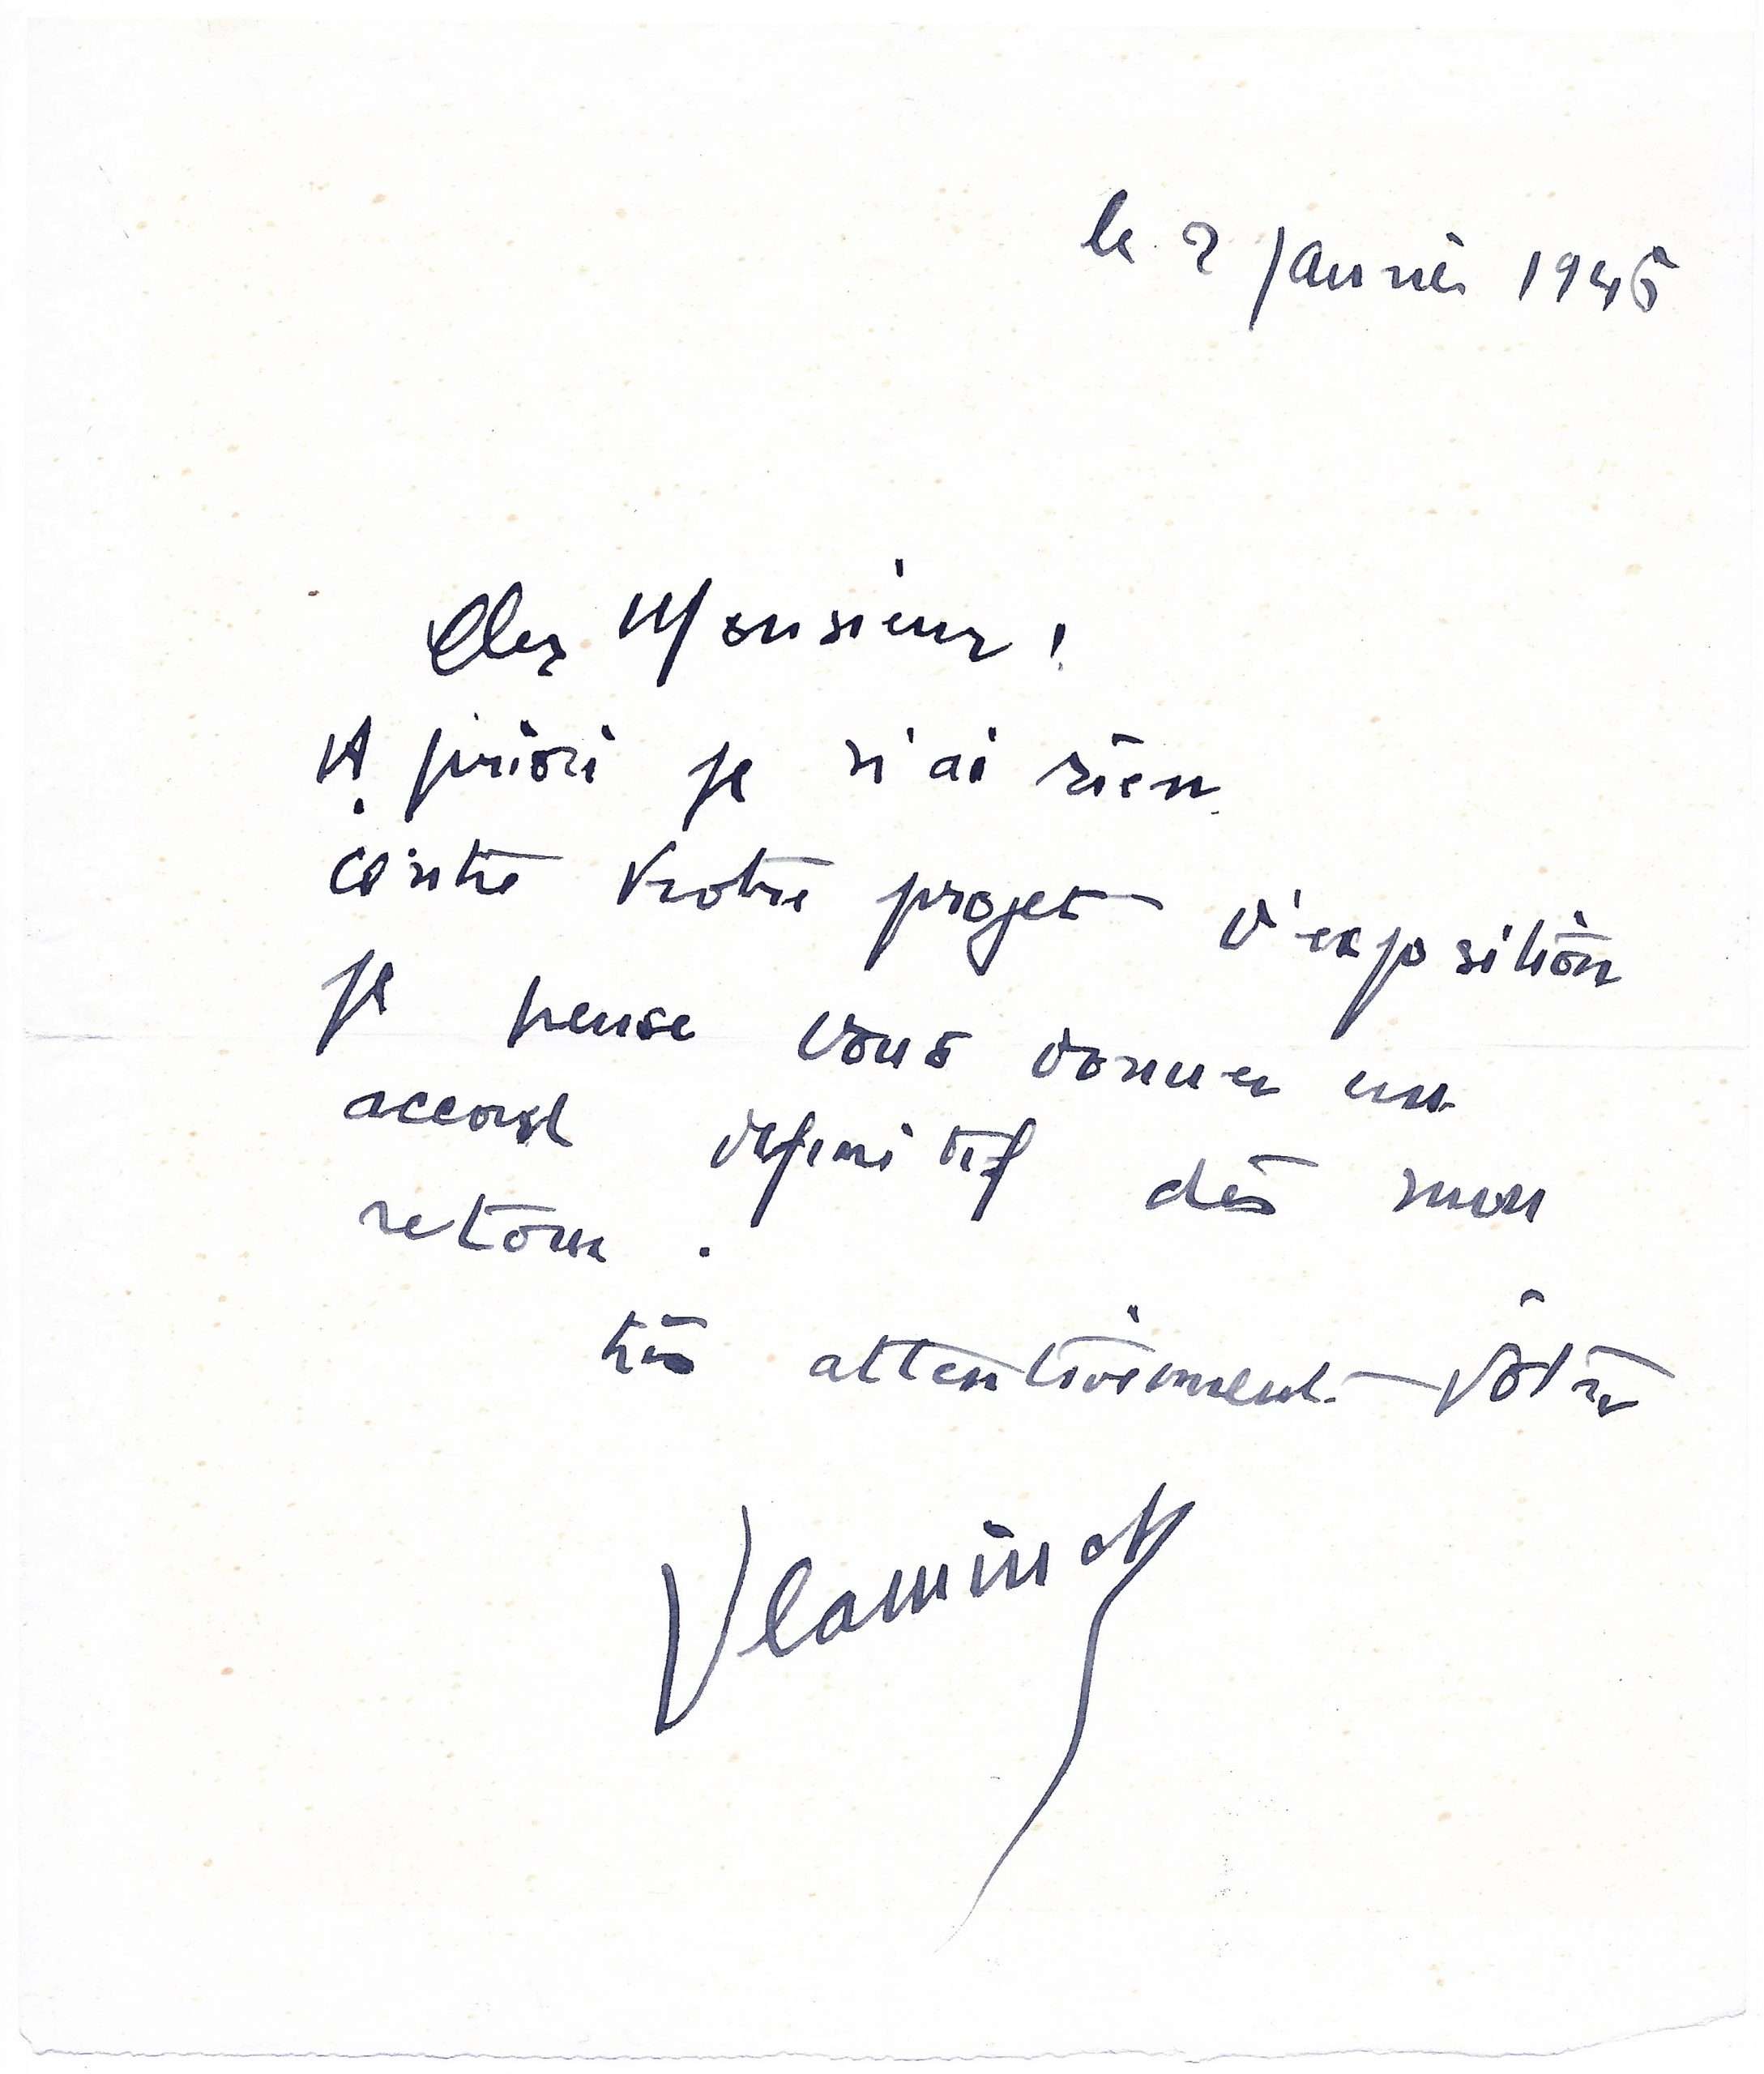 le 2 Janvier 1945
Cher Monsieur !
A priori je n'ai rien
contre votre projet d'exposition
je pense vous donner un
accord definitif dès mon
retour .
très attentivement vôtre
Vlaminck